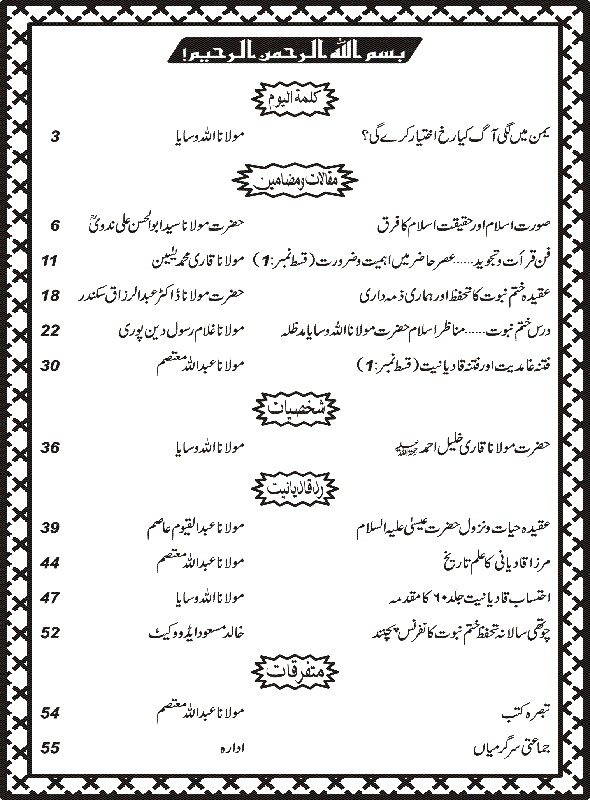 بسم اللہ الرحمن الرحیم!
کلمۃ الیوم
یمن میں لگی آگ کیا رخ اختیار کرے گی؟ مولانا اللہ وسایا 3
مقالات و مضامین
صورت اسلام اور حقیقت اسلام کا فرق حضرت مولانا سید ابو الحسن علی ندویؒ 6
فن قرأت و تجوید.....عصر حاضر میں اہمیت و ضرورت (قسط نمبر:1) مولانا قاری محمد یٰسین 11
عقیدہ ختم نبوت کا تحفظ اور ہماری ذمہ داری حضرت مولانا ڈاکٹر عبد الرزاق سکندر 18
درس ختم نبوت.....مناظر اسلام حضرت مولانا اللہ وسایا مدظلہ مولانا غلام رسول دین پوری 22
فتنہ غامدیت اور فتنہ قادیانیت (قسط نمبر:1) مولانا عبد اللہ معتصم 30
شخصیات
حضرت مولانا قاری خلیل احمد رحمۃ اللہ علیہ مولانا اللہ وسایا 36
رد قادیانیت
عقیدہ حیات و نزول حضرت عیسیٰ علیہ السلام مولانا عبد القیوم عاصم 39
مرزا قادیانی کا علم تاریخ مولانا عبد اللہ معتصم 44
احتساب قادیانیت جلد ۶۰ کا مقدمہ مولانا اللہ وسایا 47
چوتھی سالانہ تحفظ ختم نبوت کانفرنس پچنند خالد مسعود ایڈووکیٹ 52
متفرقات
تبصرہ کتب مولانا عبد اللہ معتصم 54
جماعتی سرگرمیاں ادارہ 55